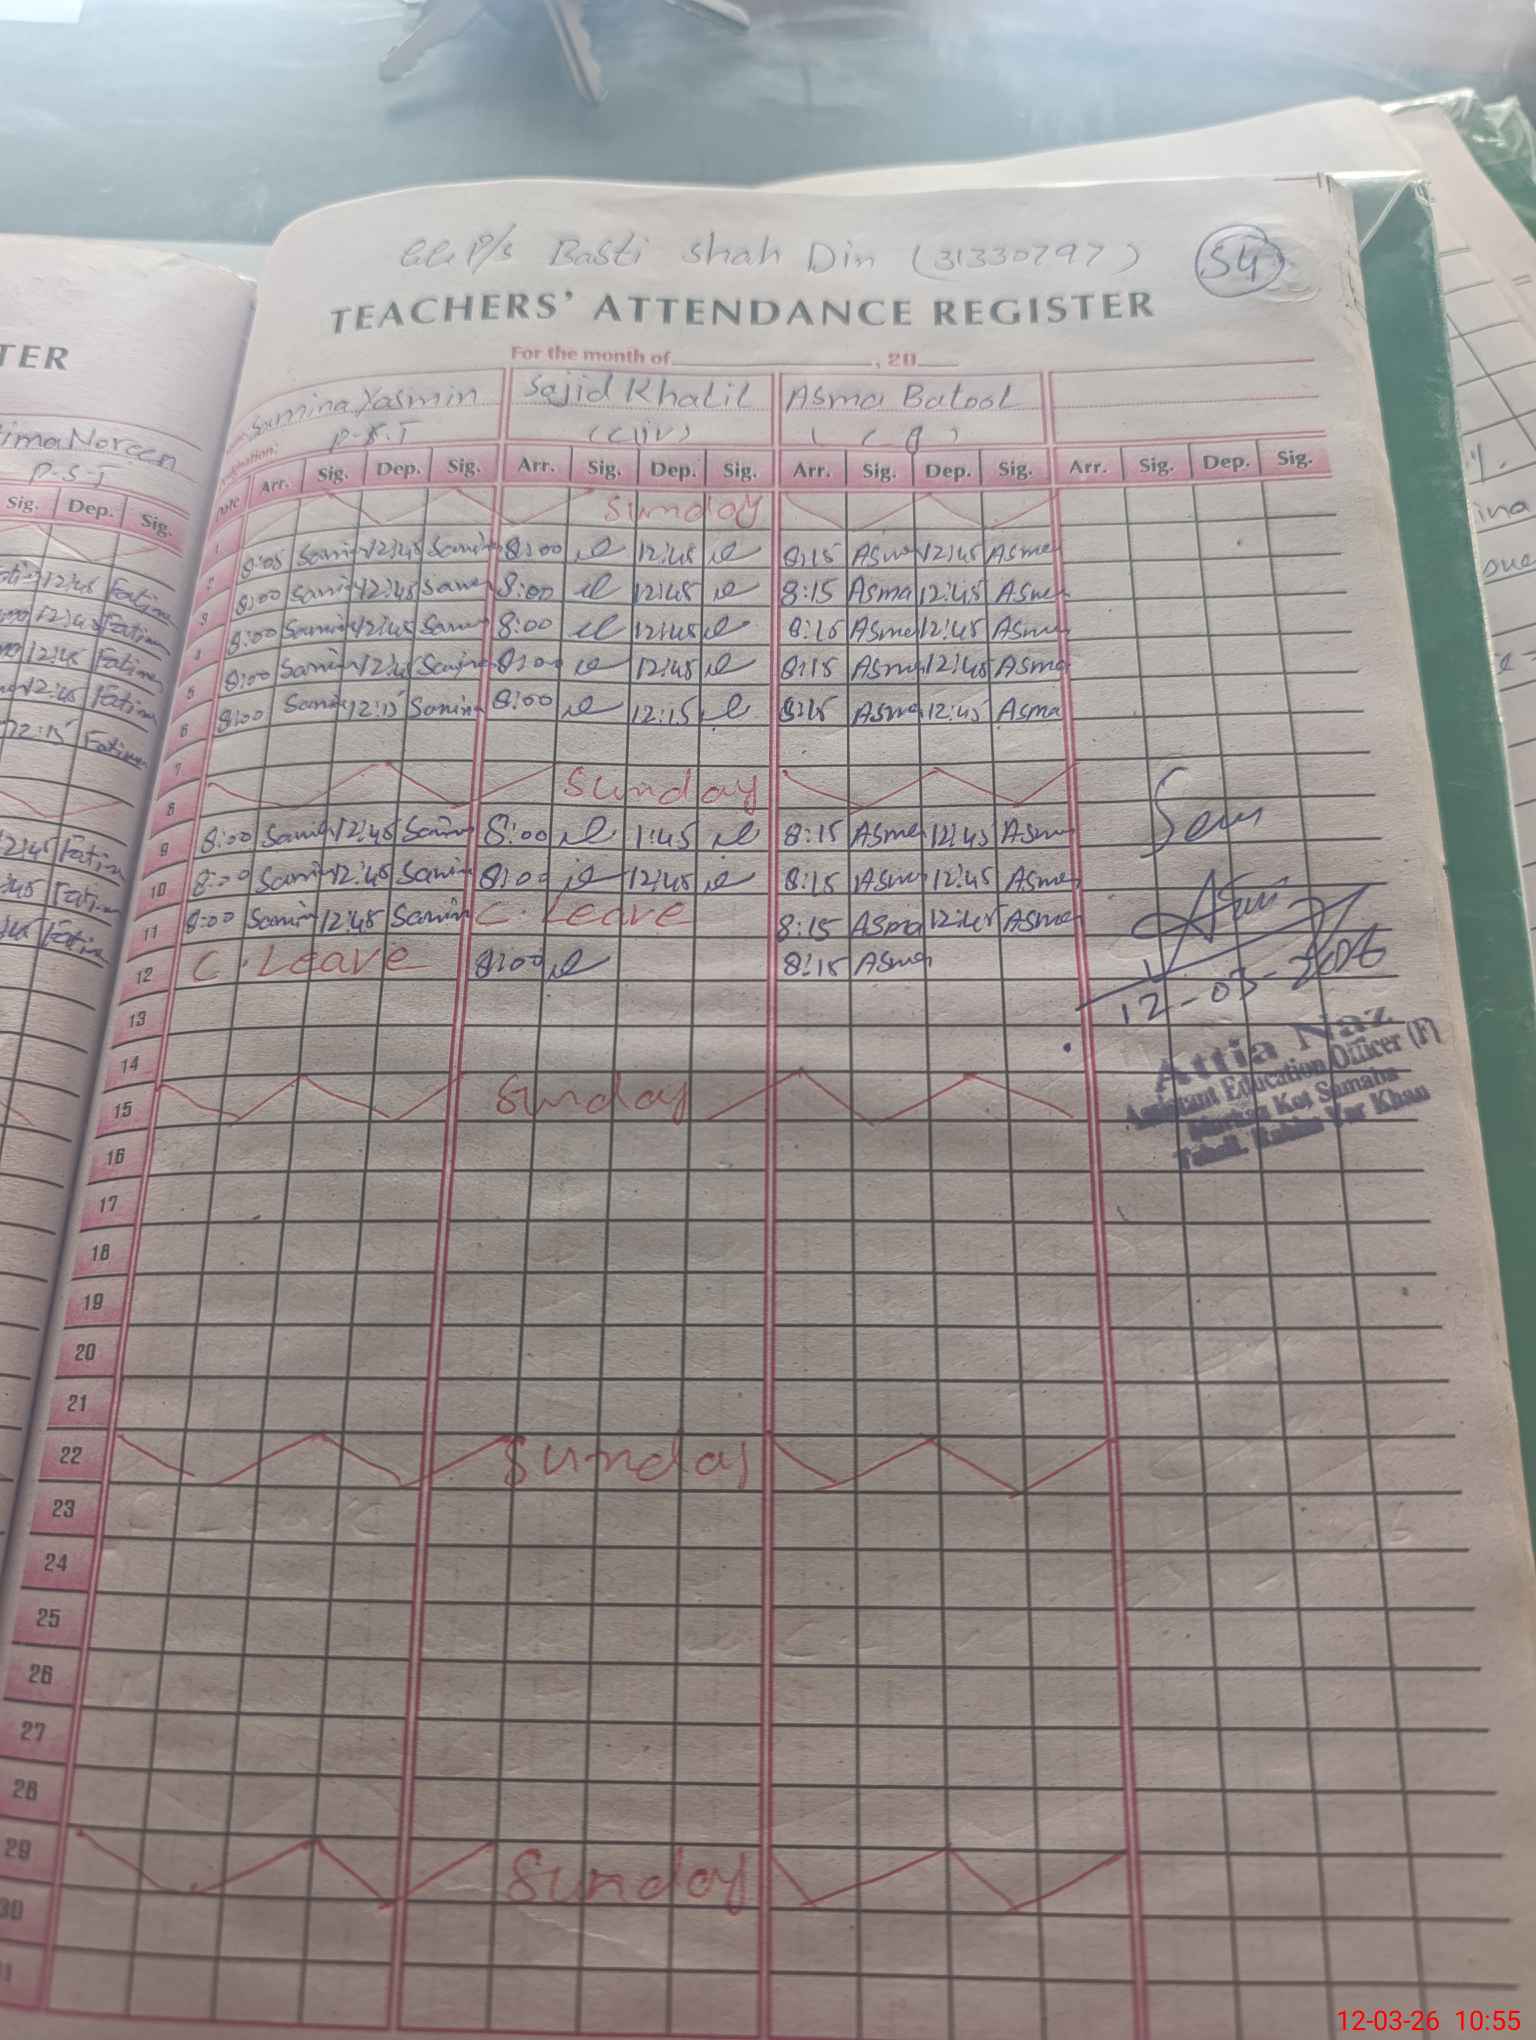 GGP/S Basti Shah Din (31330797) 54
TEACHERS' ATTENDANCE REGISTER
For the month of , 20
Samina Yasmin Sajid Khalil Asma Batool
P.S.T (Civ)
Date Arr. Sig. Dep. Sig. Arr. Sig. Dep. Sig. Arr. Sig. Dep. Sig. Arr. Sig. Dep. Sig.
1 Sunday
2 8:05 Samin 12:45 Samin 8:00 12:45 8:15 Asma 12:45 Asma
3 8:00 Samin 12:45 Samin 8:00 12:45 8:15 Asma 12:45 Asma
4 8:00 Samin 12:45 Samin 8:00 12:45 8:15 Asma 12:45 Asma
5 8:00 Samin 12:45 Samin 8:00 12:45 8:15 Asma 12:45 Asma
6 8:00 Samin 12:15 Samin 8:00 12:15 8:15 Asma 12:45 Asma
7
8 Sunday
9 8:00 Samin 12:45 Samin 8:00 1:45 8:15 Asma 12:45 Asma
10 8:00 Samin 12:45 Samin 8:00 12:45 8:15 Asma 12:45 Asma
11 8:00 Samin 12:45 Samin C. Leave 8:15 Asma 12:45 Asma
12 C. Leave 8:00 8:15 Asma
12-03-2026
13
Attia Naz
14
Assistant Education Officer (F)
15 Sunday
Markaz Kot Samaba
Tehsil. Rahim Yar Khan
16
17
18
19
20
21
22 Sunday
23
24
25
26
27
28
29 Sunday
30
TER
Fatima Noreen
P-S-T
Sig. Dep. Sig.
12:45 Fatima
12:45 Fatima
12:45 Fatima
12:45 Fatima
12:15 Fatima
12:45 Fatima
:45 Fatima
Fatima
12-03-26 10:55